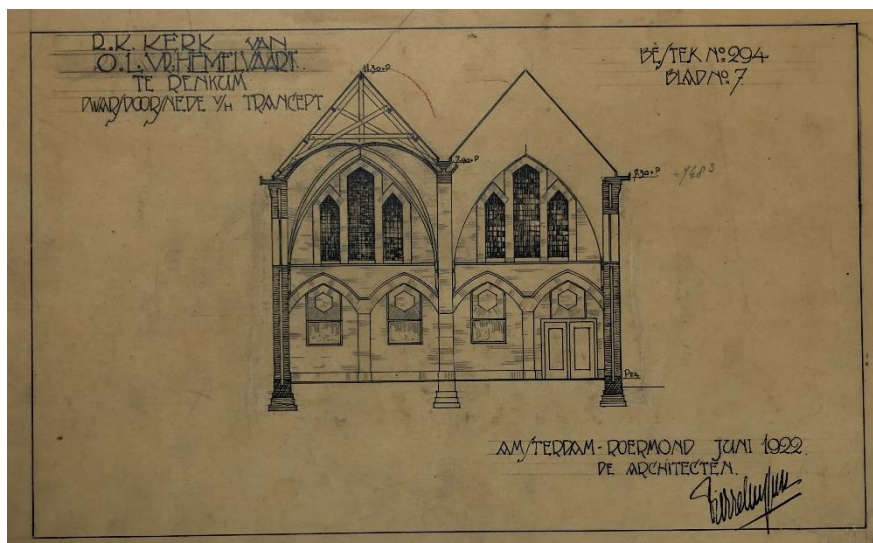 R.K. KERK VAN
O.L. VR. HEMELVAART.
TE RENKUM
DWARSDOORSNEDE V/H TRANCEPT
BESTEK No. 294
BLAD No. 7
7.90+P
7.90+P
Peil
AMSTERDAM - ROERMOND JUNI 1922.
DE ARCHITECTEN.